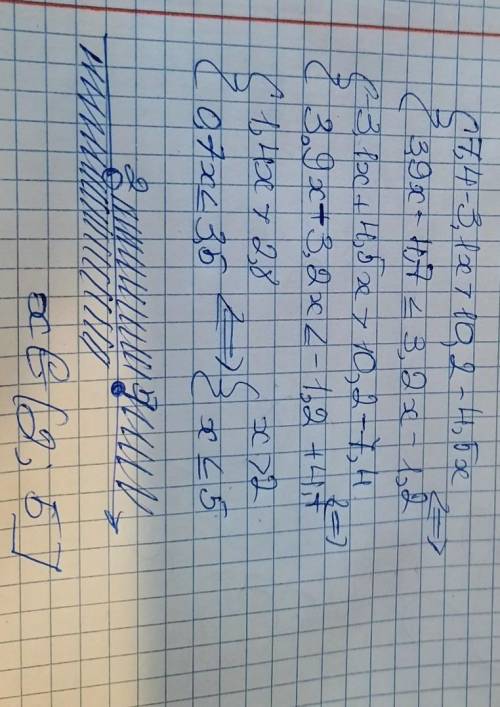 { 7,4 - 3,1x > 10,2 - 4,5x
{ 3,9x - 4,7 ≤ 3,2x - 1,2 <=>
{ -3,1x + 4,5x > 10,2 - 7,4
{ 3,9x - 3,2x ≤ -1,2 + 4,7 <=>
{ 1,4x > 2,8
{ 0,7x ≤ 3,5 <=> { x > 2
{ x ≤ 5
2 5
x ∈ (2; 5]